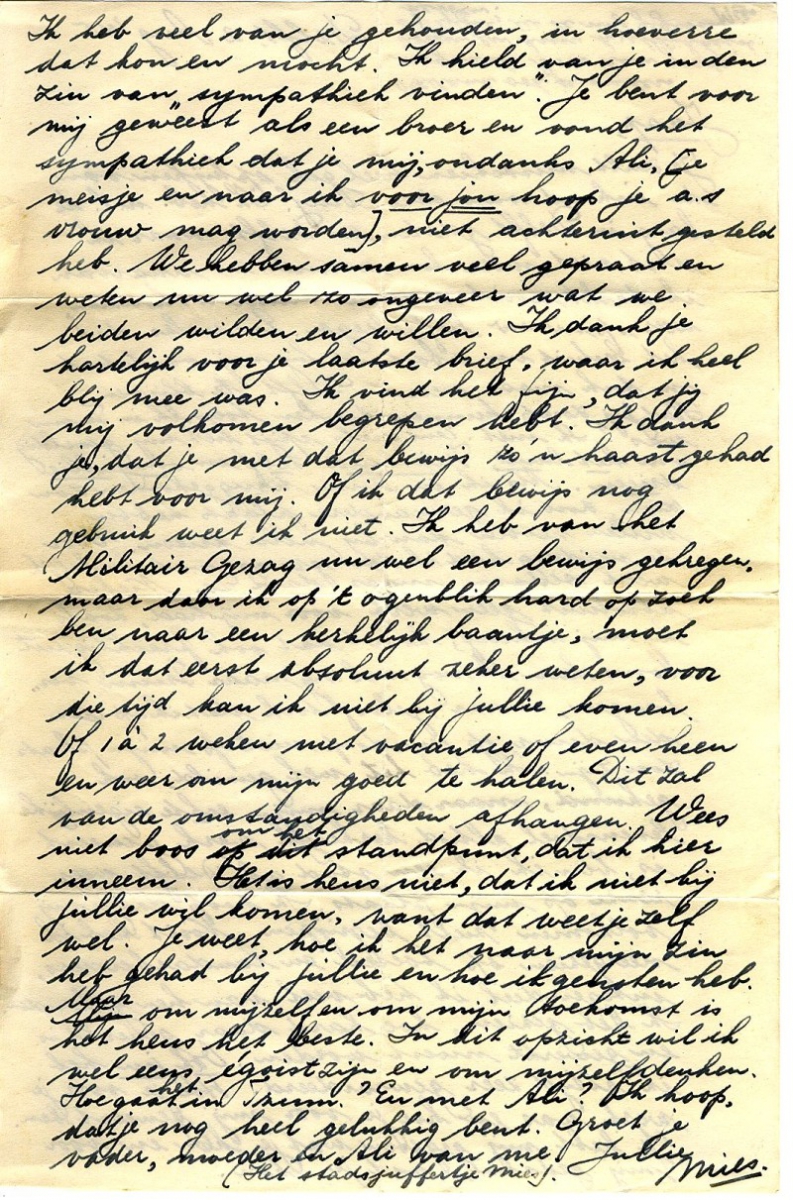 Ik heb veel van je gehouden, in hoeverre
dat kon en mocht. Ik hield van je in den
zin van „sympathiek vinden". Je bent voor
mij geweest als een broer en vond het
sympathiek dat je mij, ondanks Ali, (je
meisje en naar ik voor jou hoop je a.s
vrouw mag worden), niet achteruit gesteld
heb. We hebben samen veel gepraat en
weten nu wel zo ongeveer wat we
beiden wilden en willen. Ik dank je
hartelijk voor je laatste brief, waar ik heel
blij mee was. Ik vind het fijn, dat jij
mij volkomen begrepen hebt. Ik dank
je, dat je met dat bewijs zo'n haast gehad
hebt voor mij. Of ik dat bewijs nog
gebruik weet ik niet. Ik heb van het
Militair Gezag nu wel een bewijs gekregen,
maar daar ik op 't ogenblik hard op zoek
ben naar een kerkelijk baantje, moet
ik dat eerst absoluut zeker weten, voor
die tijd kan ik niet bij jullie komen.
Of 1 à 2 weken met vacantie of even heen
en weer om mijn goed te halen. Dit zal
van de omstandigheden afhangen. Wees
niet boos op dit om het standpunt, dat ik hier
inneem. Het is heus niet, dat ik niet bij
jullie wil komen, want dat weet je zelf
wel. Je weet, hoe ik het naar mijn zin
heb gehad bij jullie en hoe ik genoten heb.
Maar om mijzelf en om mijn toekomst is
het heus het beste. In dit opzicht wil ik
wel eens egoist zijn en om mijzelf denken.
Hoe gaat het in Tzum? En met Ali? Ik hoop,
dat je nog heel gelukkig bent. Groet je
vader, moeder en Ali van me. Jullie Mies.
(Het stadsjuffertje Mies).